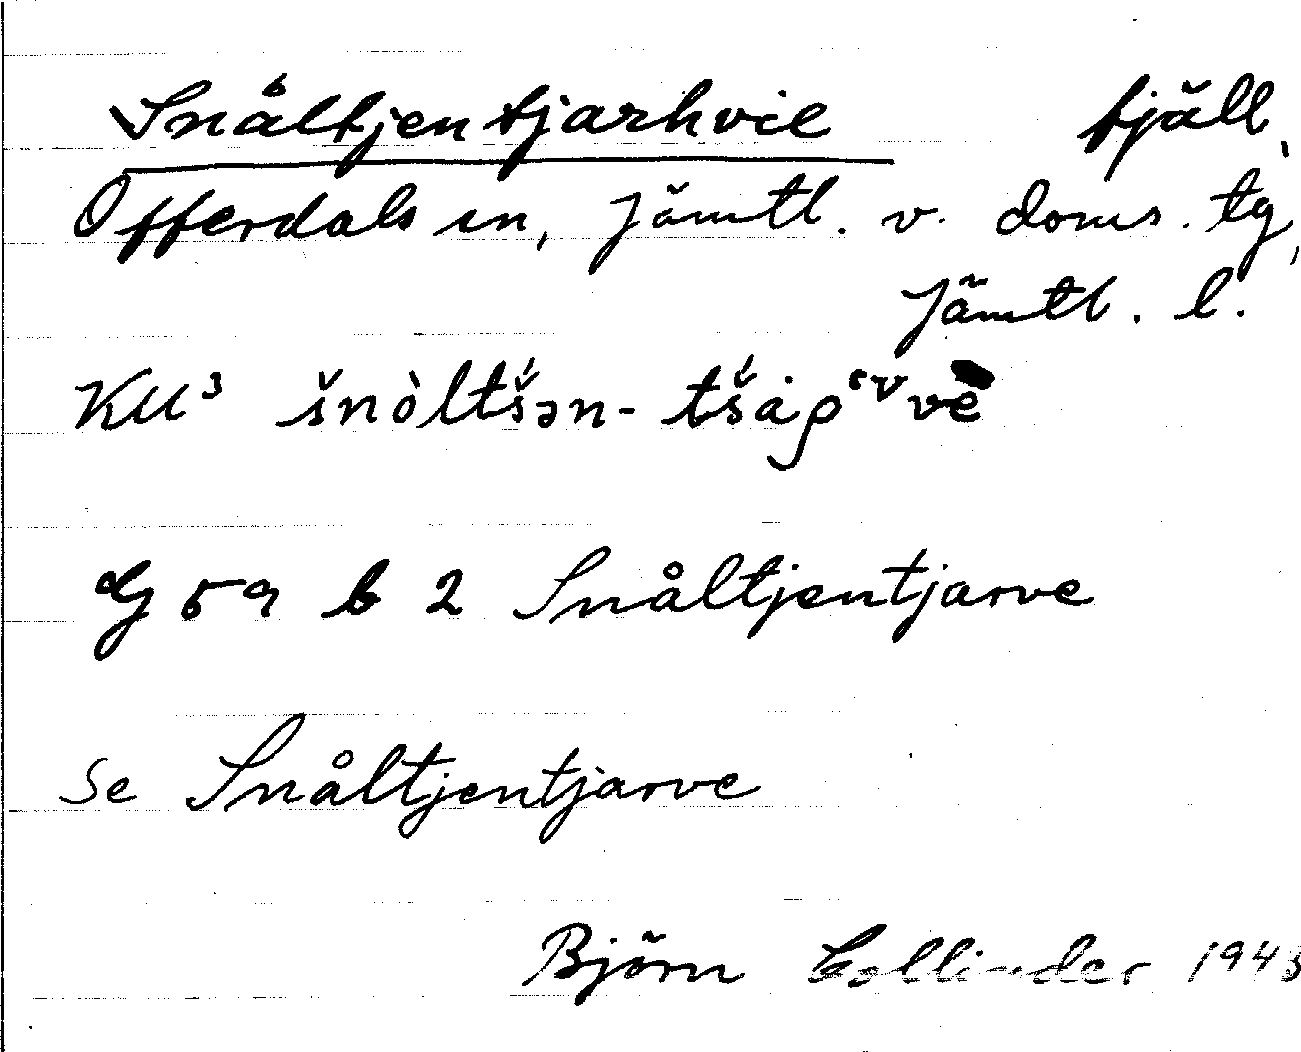 Snåltjentjarhvie fjäll,
Offerdals sn, Jämtl. v. doms. tg,
Jämtl. l.
KU³ šnòltš́ən-tš́aρ
G 59 b 2 Snåltjentjarve
Se Snåltjentjarve
Björn Collinder 1943